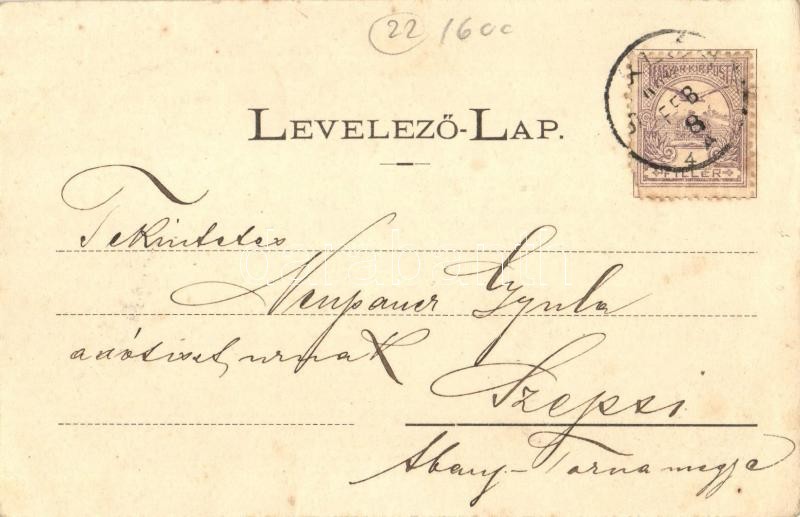 22 1600
LEVELEZŐ-LAP.
MAGYAR KIR. POSTA
FEB 8
4
FILLÉR
Tekintetes
Neupauer Gyula
adótiszt urnak
Szepsi
Abauj-Torna megye